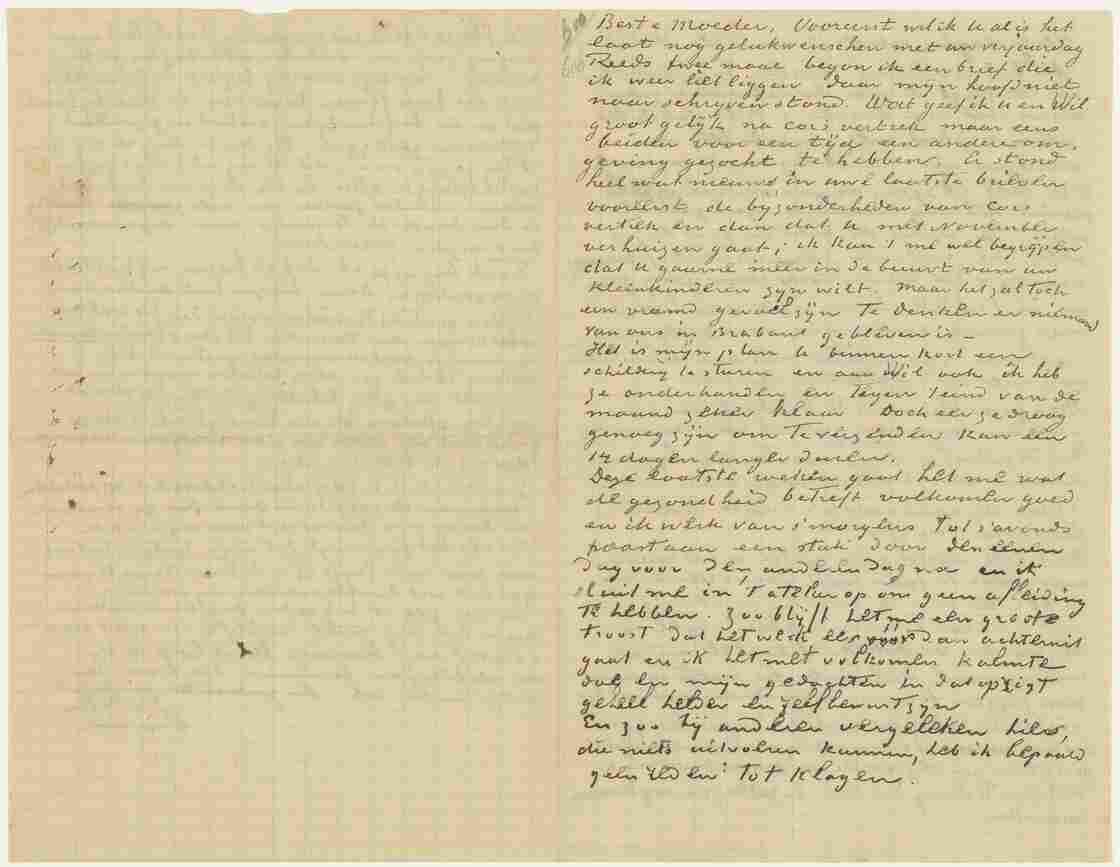 Beste Moeder, Vooreerst wil ik U al is het
laat nog gelukwenschen met uw verjaardag
Reeds twee maal begon ik een brief die
ik weer liet liggen daar mijn hoofd niet
naar schrijven stond. Wat geef ik u en Wil
groot gelijk na Cors vertrek maar eens
beiden voor een tijd een andere om,
geving gezocht te hebben. Er stond
heel wat nieuws in uwe laatste brieven
vooreerst de bijzonderheden van Cors
vertrek en dan dat u met November
verhuizen gaat; ik kan 't me wel begrijpen
dat u gaarne meer in de buurt van uw
kleinkinderen zijn wilt. Maar het zal toch
een vreemd gevoel zijn te denken er niemand
van ons in Brabant gebleven is –
Het is mijn plan u binnen kort een
schilderij te sturen en aan Wil ook ik heb
ze onderhanden en tegen 't eind van de
maand zeker klaar Doch eer ze droog
genoeg zijn om te verzenden kan een
14 dagen langer duren.
Deze laatste weken gaat het me wat
de gezondheid betreft volkomen goed
en ik werk van s'morgens tot s'avonds
haast aan een stuk door den eenen
dag voor den anderen dag na en ik
sluit me in 't atelier op om geen afleiding
te hebben. Zoo blijft het me een groote
troost dat het werk eer vóór dan achteruit
gaat en ik het met volkomen kalmte
doe en mijn gedachten in dat opzigt
geheel helder en zelfbewust zijn
En zoo bij anderen vergeleken hier,
die niets uitvoeren kunnen, heb ik bepaald
geen reden tot klagen.